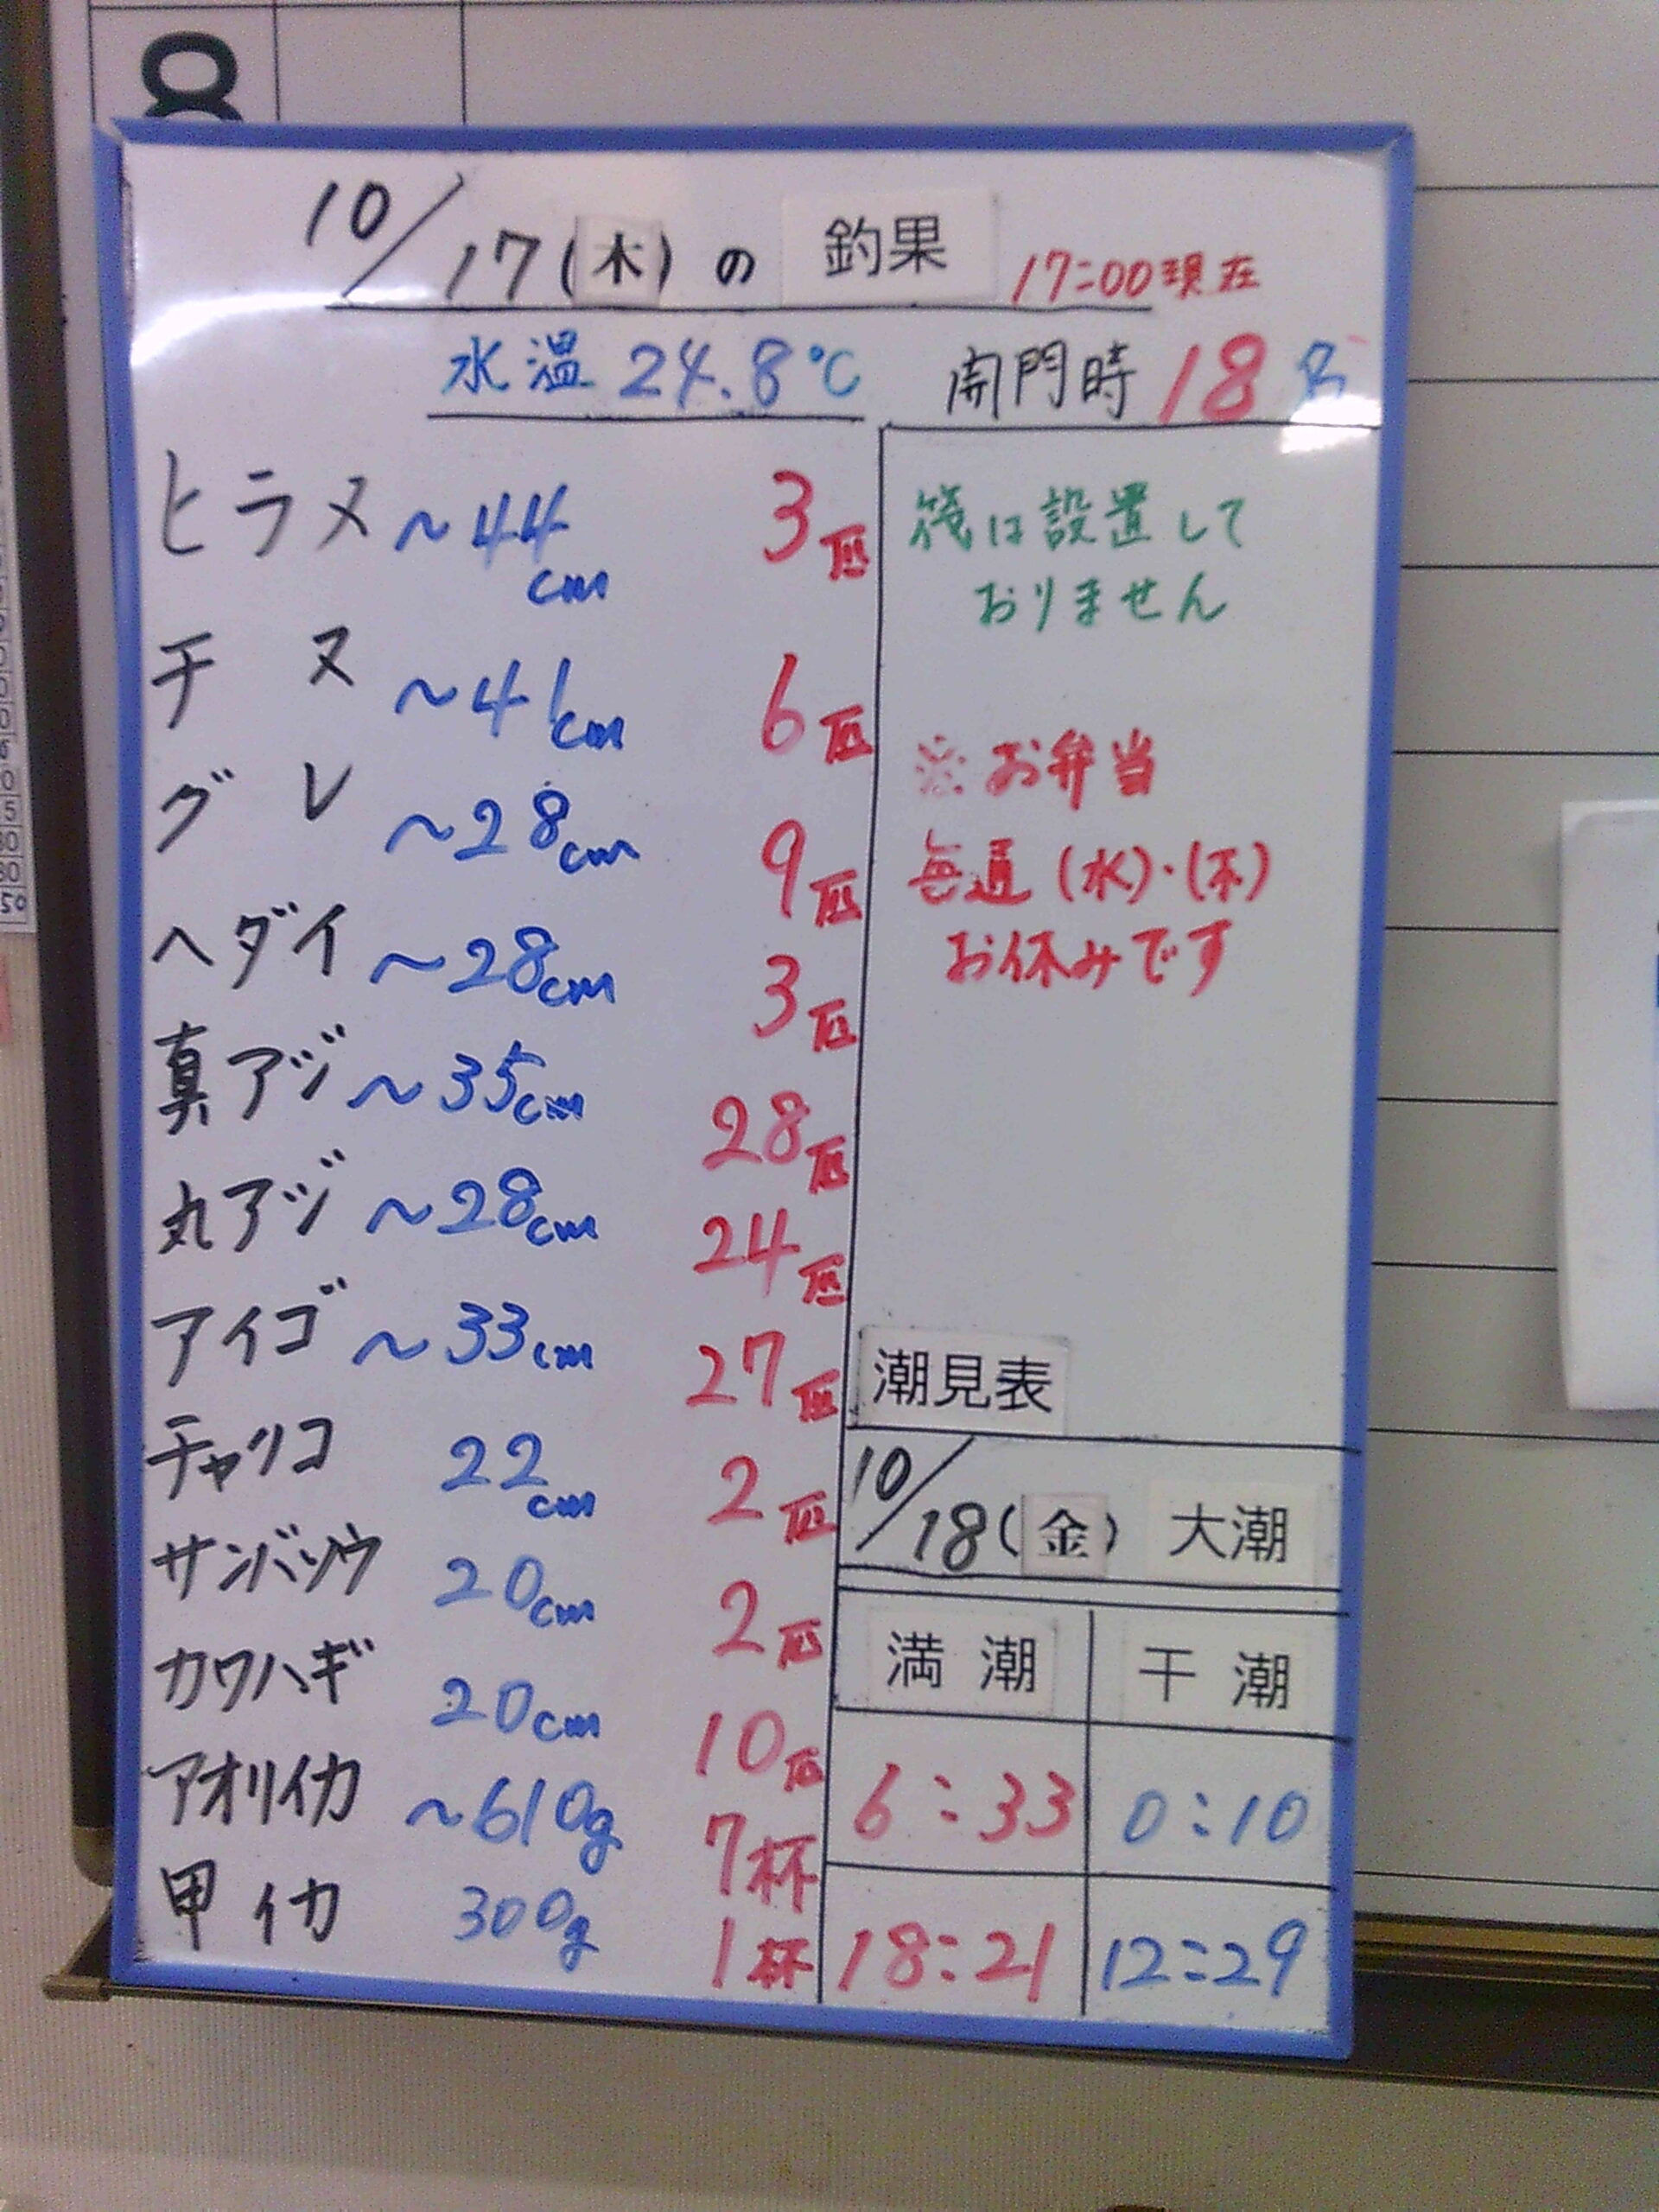 10/17(木)の 釣果 17:00現在
水温 24.8℃ 開門時 18名
ヒラヌ ~44cm 3匹
チヌ ~41cm 6匹
グレ ~28cm 9匹
ヘダイ ~28cm 3匹
真アジ ~35cm 28匹
丸アジ ~28cm 24匹
アイゴ ~33cm 27匹
チャリコ 22cm 2匹
サンバソウ 20cm 2匹
カワハギ 20cm 10匹
アオリイカ ~610g 7杯
甲イカ 300g 1杯
筏は設置して
おりません
※お弁当
毎週(水)・(木)
お休みです
潮見表
10/18(金) 大潮
満潮 干潮
6:33 0:10
18:21 12:29